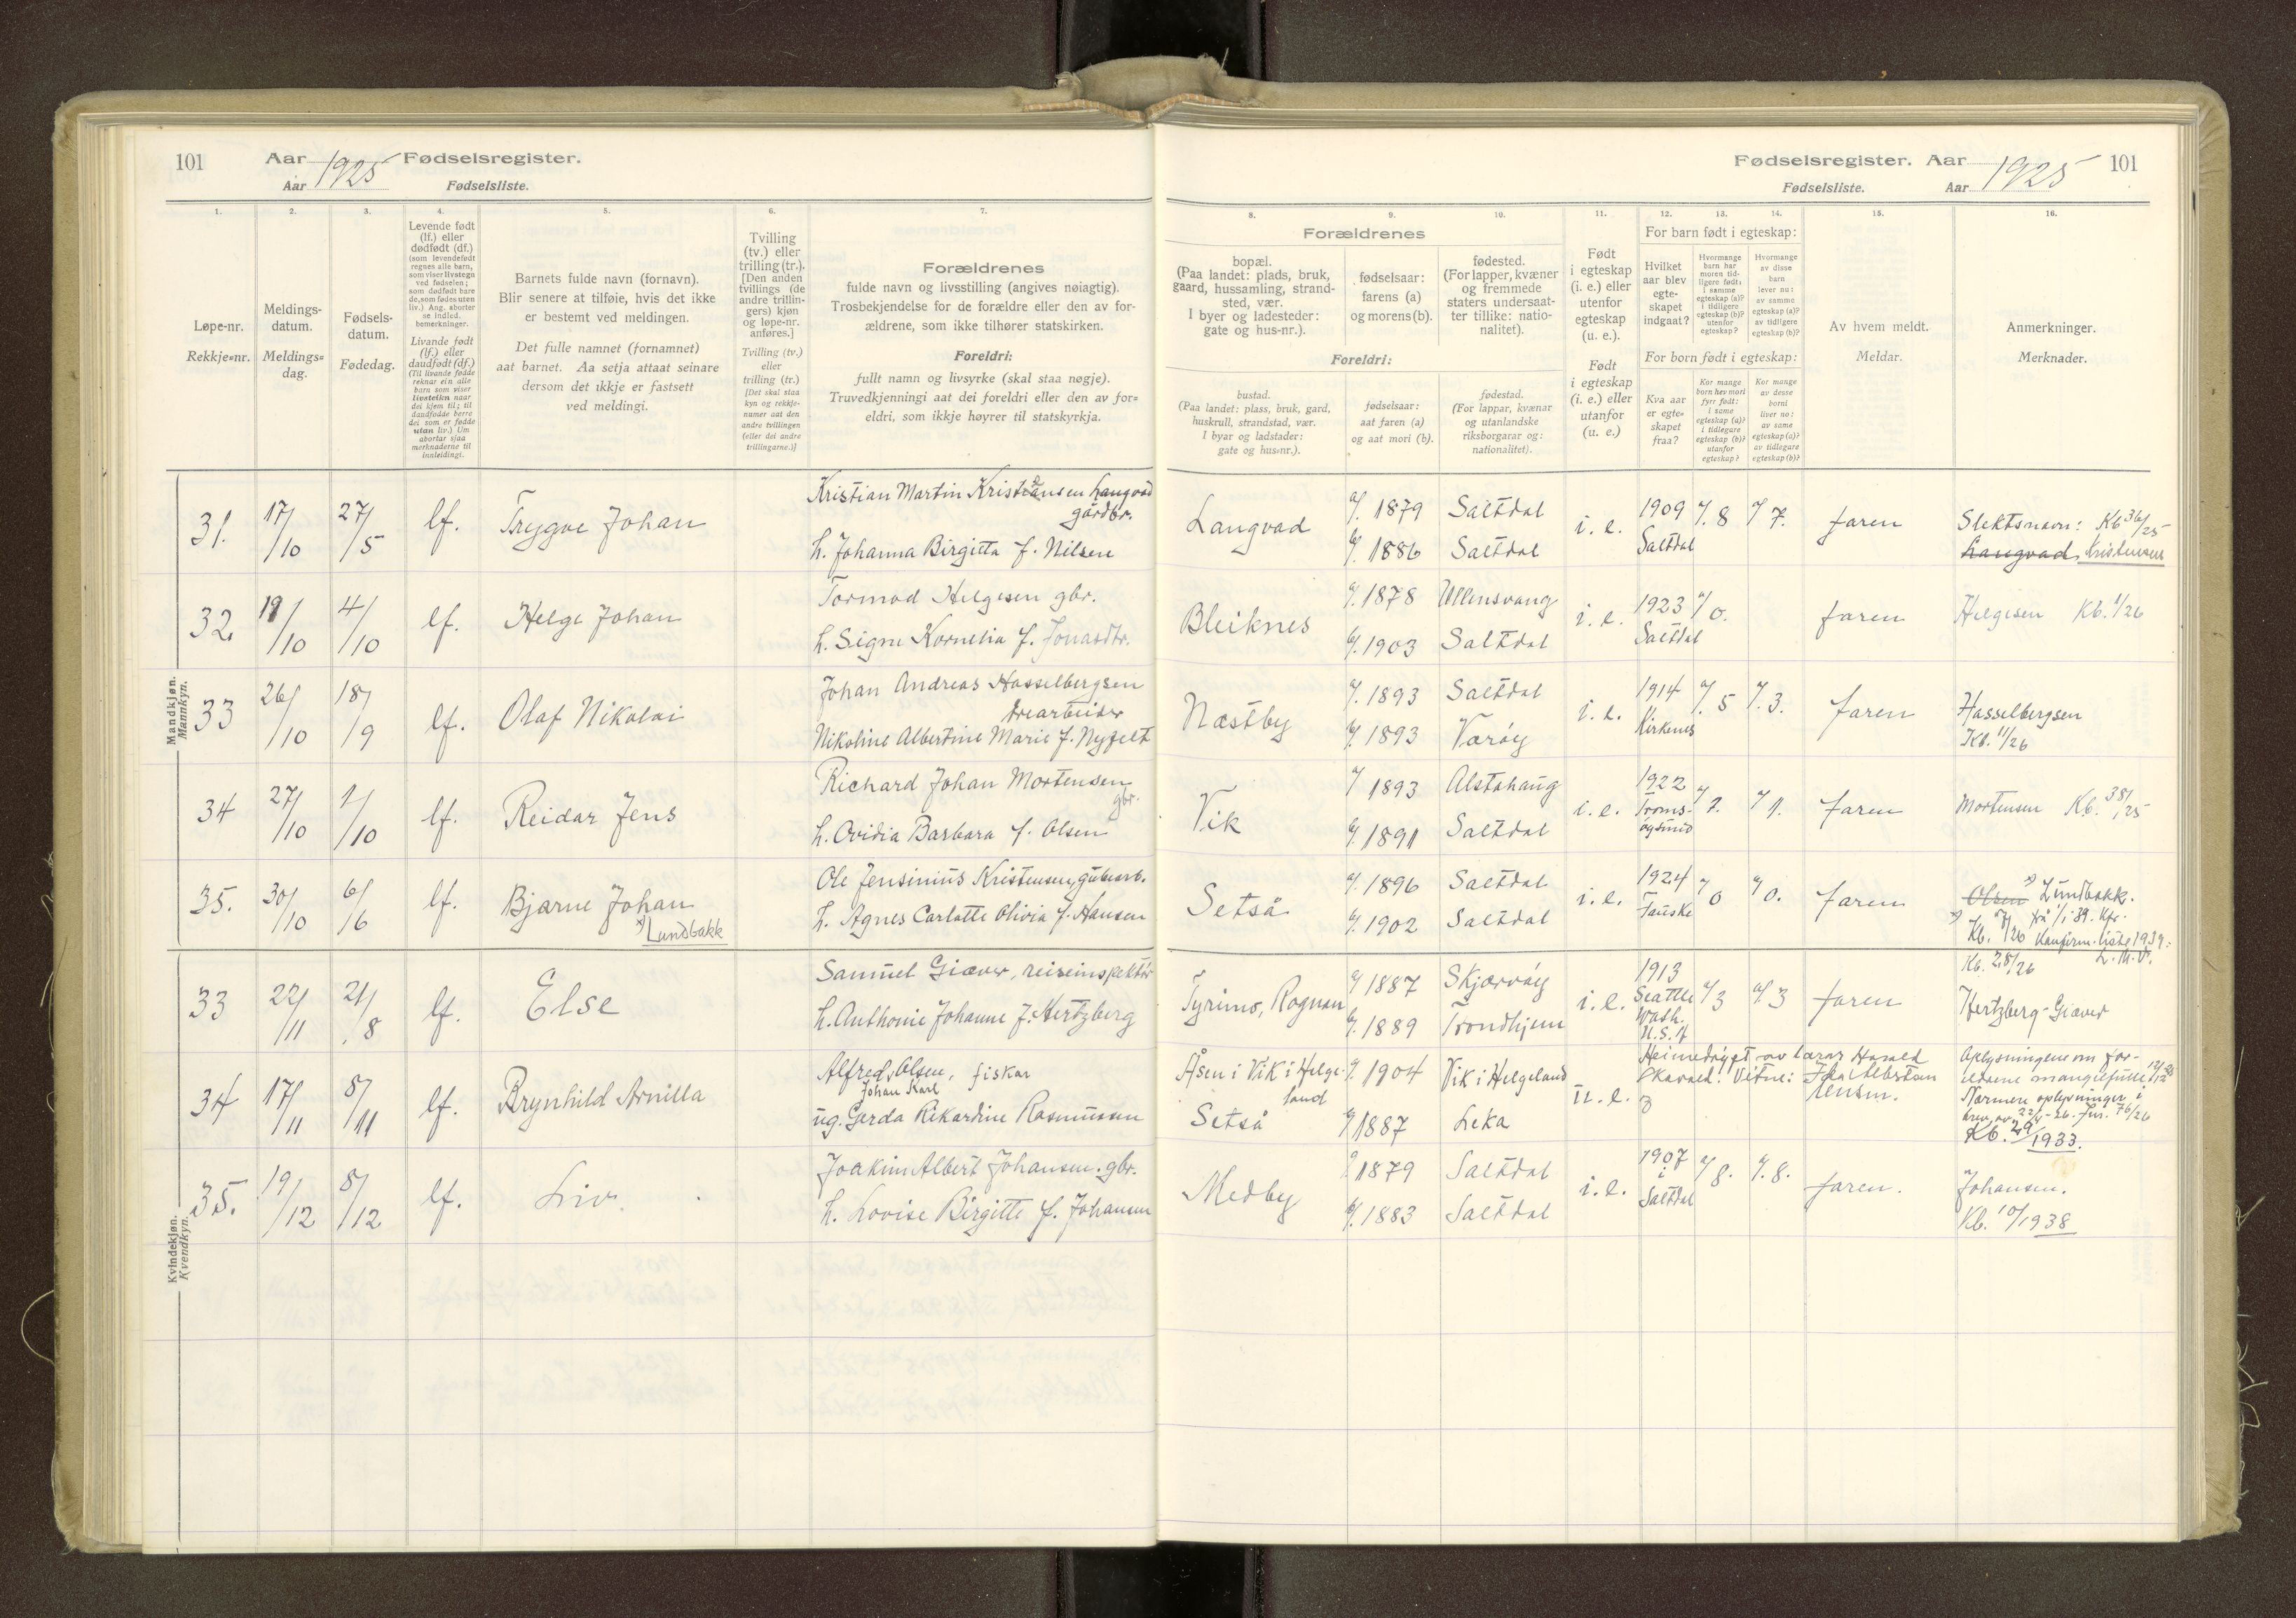 101 Aar 1925 Fødselsregister.
Aar Fødselsliste.
Fødselsregister. Aar 1925 101
Fødselsliste. Aar
1. 2. 3. 4. 5. 6. 7.
Løpe-nr.
Rekkje=nr.
Meldings-
datum.
Meldings=
dag.
Fødsels-
datum.
Fødedag.
Levende født
(lf.) eller
dødfødt (df.)
(som levendefødt
regnes alle barn,
som viser livstegn
ved fødselen;
som dødfødt bare
de, som fødes uten
liv.) Ang. aborter
se indled.
bemerkninger.
Livande født
(lf.) eller
daudfødt (df.)
(Til livande fødde
reknar ein alle
born som viser
livsteikn naar
dei kjem til; til
daudfødde berre
dei som er fødde
utan liv.) Um
abortar sjaa
merknaderne til
innleidingi.
Barnets fulde navn (fornavn).
Blir senere at tilføie, hvis det ikke
er bestemt ved meldingen.
Det fulle namnet (fornamnet)
aat barnet. Aa setja attaat seinare
dersom det ikkje er fastsett
ved meldingi.
Tvilling
(tv.) eller
trilling (tr.).
[Den anden
tvillings (de
andre trillin-
gers) kjøn
og løpe-nr.
anføres.]
Tvilling (tv.)
eller
trilling (tr.)
[Det skal staa
kyn og rekkje-
numer aat den
andre tvillingen
(eller dei andre
trillingarne.)]
Forældrenes
fulde navn og livsstilling (angives nøiagtig).
Trosbekjendelse for de forældre eller den av for-
ældrene, som ikke tilhører statskirken.
Foreldri:
fullt namn og livsyrke (skal staa nøgje).
Truvedkjenningi aat dei foreldri eller den av for=
eldri, som ikkje høyrer til statskyrkja.
8. 9. 10. 11. 12. 13. 14. 15. 16.
Forældrenes
bopæl.
(Paa landet: plads, bruk,
gaard, hussamling, strand-
sted, vær.
I byer og ladesteder:
gate og hus-nr.).
Foreldri:
bustad.
(Paa landet: plass, bruk, gard,
huskrull, strandstad, vær.
I byar og ladstader:
gate og hus=nr.).
fødselsaar:
farens (a)
og morens (b).
fødselsaar:
aat faren (a)
og aat mori (b).
fødested.
(For lapper, kvæner
og fremmede
staters undersaat-
ter tillike: natio-
nalitet).
fødestad.
(For lappar, kvænar
og utanlandske
riksborgarar og:
nationalitet).
Født
i egteskap
(i. e.) eller
utenfor
egteskap
(u. e.).
Født
i egteskap
(i. e.) eller
utanfor
(u. e.)
For barn født i egteskap:
Hvilket
aar blev
egte-
skapet
indgaat?
Hvormange
barn har
moren tid-
ligere født:
i samme
egteskap (a)?
i tidligere
egteskap (b)?
utenfor
egteskap?
Hvormange
av disse
barn
lever nu:
av samme
egteskap (a)?
av tidligere
egteskap (b)?
For born født i egteskap:
Kva aar
er egte=
skapet
fraa?
Kor mange
born hev mori
fyrr født:
i same
egteskap (a)?
i tidlegare
egteskap (b)?
utanfor
egteskap?
Kor mange
av desse
borni
liver no:
av same
egteskap (a)?
av tidlegare
egteskap (b)?
Av hvem meldt.
Meldar.
Anmerkninger.
Merknader.
Mandkjøn.
Mannkyn.
31. 17/10 27/5 lf. Trygve Johan
Kristian Martin Kristiansen Langvad
gårdbr.
h. Johanna Birgitta f. Nilsen
Langvad
a/. 1879 Saltdal
b/. 1886 Saltdal
i. e. 1909
Saltdal
a/. 8 a/ 7. faren
Slektsnavn: Kb 36/25
Langvad, Kristensen
32. 19/10 4/10 lf. Helge Johan
Tormod Helgesen gbr.
h. Signe Kornelia f. Jonasdtr.
Bleiknes
a/. 1878 Ullensvang
b/. 1903 Saltdal
i. e. 1923
Saltdal
a/0. faren Helgesen Kb. 1/26
33 26/10 18/9 lf. Olaf Nikolai
Johan Andreas Hasselbergsen
Nikoline Albertine Marie f.
Næstby
a/. 1893 Saltdal
b/. 1893 Værøy
i. e. 1914
Kirkenes
a/. 5 a/. 3. faren
Hasselbergsen
Kb. 11/26
34 27/10 1/10 lf. Reidar Jens
Richard Johan Mortensen
gbr.
h. Ovidia Barbara f. Olsen
Vik
a/ 1893 Alstahaug
b/. 1891 Saltdal
i. e. 1922
Troms-
øysund
a/ 1. faren Mortensen Kb. 38/25
35. 30/10 6/16 lf. Bjarne Johan
x) Lundbakk
Ole Jensinius Kristensen, grubearb.
h. Agnes Carlotte Olivia f. Hansen
Setså
a/. 1896 Saltdal
b/. 1902 Saltdal
i. e. 1924
Fauske
a/ 0 a/ 0. faren
Olsen x) Lundbakk.
x) fra 1/1-39. Kfr.
Kb. 7/26 Konfirm. liste 1939:
L. M. V.
Kvindekjøn.
Kvendkyn.
33 22/11 21/8 lf. Else
Samuel Giæver, reiseinspektør
h. Anthonie Johanne f. Hertzberg
Tyrimo, Rognan
a/ 1887 Skjærvøy
b/. 1889 Trondhjem
i. e. 1913
Seattle
Wash.
U.S.A
a/3 a/. 3 faren
Kb. 28/26
Hertzberg-Giæver
34 17/11 8/11 lf. Brynhild Arnilla
Alfred Olsen, fiskar
Johan Karl
ug. Gerda Rikardine Rasmussen
Åsen i Vik i Helge-
land
Setså
a/. 1904 Vik i Helgeland
b/ 1887 Leka
u. e. 3
Heimedøypt av lærar Harald
Vitne:
Oplysningene om for-
eldrene mangelfulle
Nærmere oplysninger i
brev av 22/4-26. Jnr. 76/26
Kb. 29/1933.
35. 19/12 8/12 lf. Liv.
Joakim Albert Johansen. gbr.
h. Lovise Birgitte f. Johansen
Medby
a/ 1879 Saltdal
b/. 1883 Saltdal
i. e. 1907
i
Saltdal
a/ 8. a/. 8. faren.
Johansen.
Kb. 10/1938